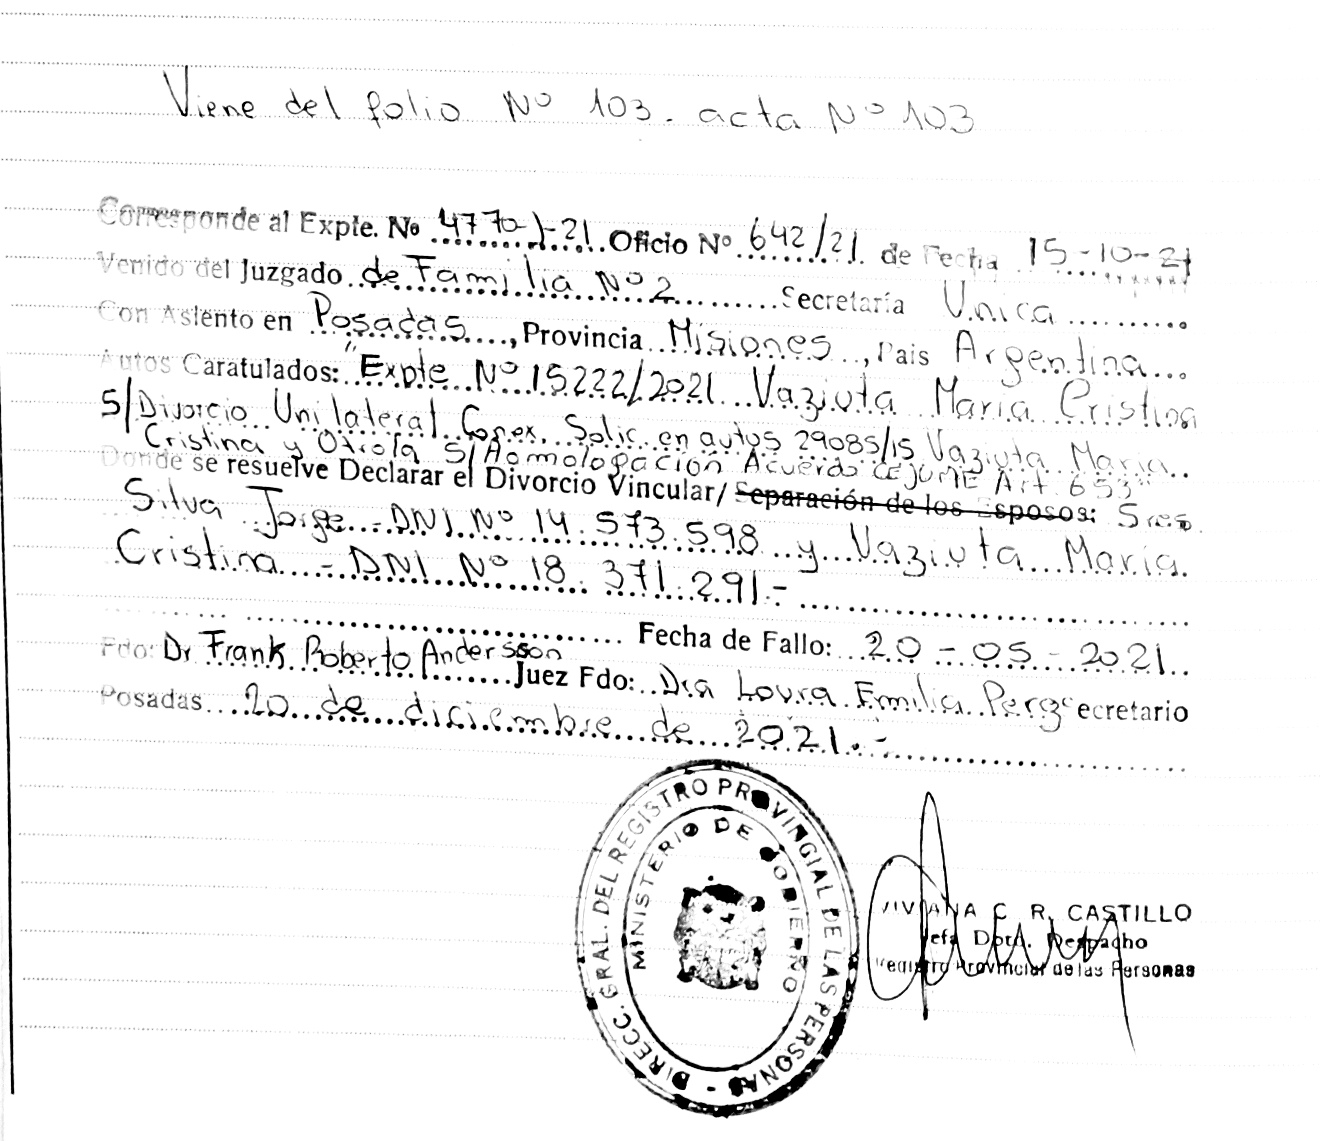 Viene del folio Nº 103. acta Nº 103
Corresponde al Expte. Nº 4770-J-21. Oficio Nº 642/21 de Fecha 15-10-21
Venido del Juzgado de Familia Nº 2 Secretaría Unica
Con Asiento en Posadas, Provincia Misiones, Pais Argentina
Autos Caratulados: "Expte Nº 15222/2021 Vaziuta Maria Cristina
S/Divorcio Unilateral Conex. Solic. en autos 29085/15 Vaziuta Maria
Cristina y Otro/a S/Homologación Acuerdo CEJUME Art. 653"
Donde se resuelve Declarar el Divorcio Vincular/ Separación de los Esposos: Sres
Silva Jorge - DNI Nº 14.573.598 y Vaziuta Maria
Cristina - DNI Nº 18.371.291.-
Fecha de Fallo: 20-05-2021
Fdo: Dr Frank Roberto Andersson Juez Fdo: Dra Loura Emilia Perez Secretario
Posadas 20 de diciembre de 2021.-
DIRECC. GRAL. DEL REGISTRO PROVINCIAL DE LAS PERSONAS -
MINISTERIO DE GOBIERNO
VIVIANA C. R. CASTILLO
Jefa Dpto. Despacho
Registro Provincial de las Personas